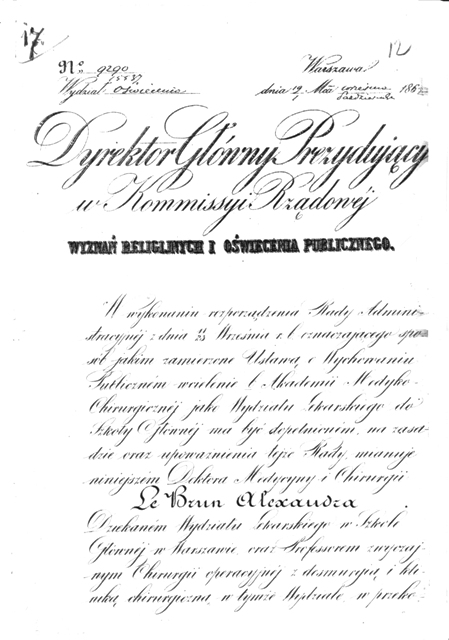 17.
12
Nº 9290
5587
Warszawa
Wydział Oświecenia
dnia 19/7 Mca Września
Październ. 186
Dyrektor Główny Prezydujący
w Kommissyi Rządowéj
WYZNAŃ RELIGIJNYCH I OŚWIECENIA PUBLICZNEGO.
W wykonaniu rozporządzenia Rady Admini-
stracyjnéj z dnia 11/23 Września r. b. oznaczającego spo-
sób jakim zamierzone Ustawą o Wychowaniu
Publiczném wcielenie b. Akademii Medyko-
Chirurgicznéj jako Wydziału Lekarskiego do
Szkoły Głównéj ma być dopełnioném, na zasa-
dzie oraz upoważnienia tejże Rady, mianuje
niniejszém Doktora Medycyny i Chirurgii
Le Brun Alexandra
Dziekanem Wydziału Lekarskiego w Szkole
Głównéj w Warszawie oraz Professorem zwyczaj-
nym Chirurgii operacyjnéj z desmurgią i kli-
niką chirurgiczną w tymże Wydziale, w przeko-